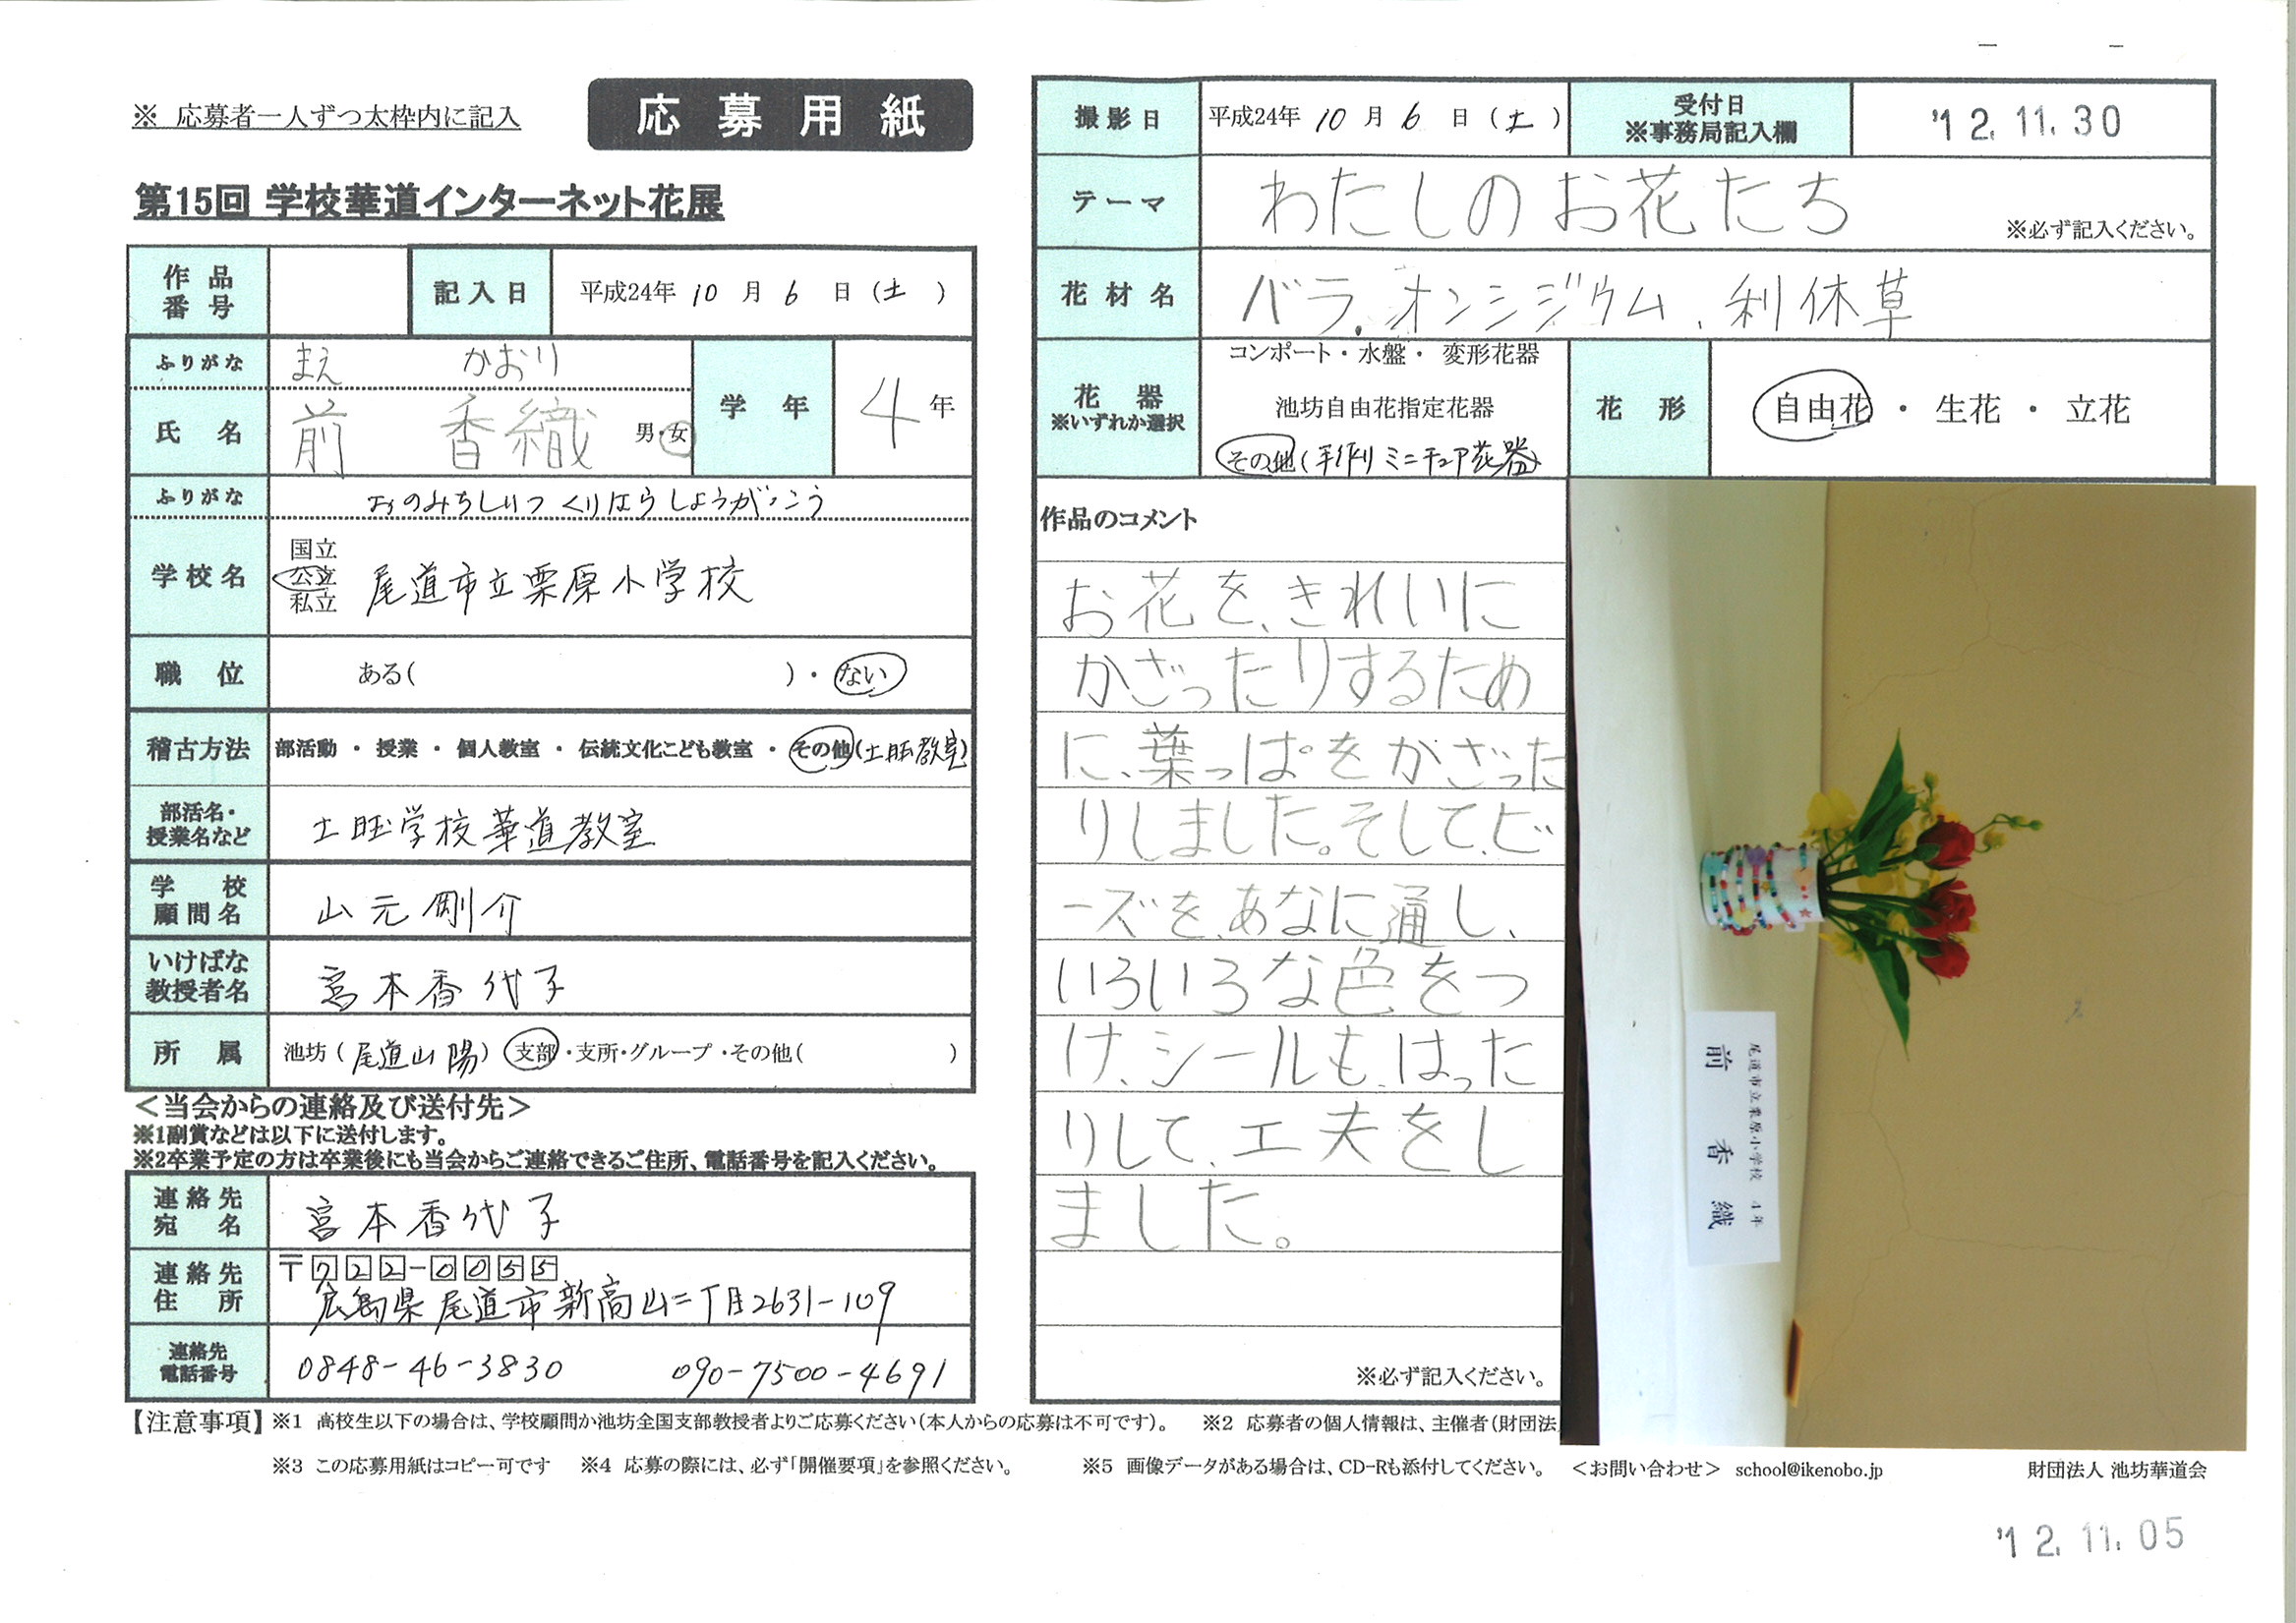 ※ 応募者一人ずつ太枠内に記入
応募用紙
第15回 学校華道インターネット花展
作品番号
記入日 平成24年 10 月 6 日 (土)
ふりがな まえ かおり
氏名 前 香織 男・女
学年 4年
ふりがな おのみちしりつ くりはらしょうがっこう
学校名 国立 公立 私立 尾道市立栗原小学校
職位 ある( )・ない
稽古方法 部活動 ・ 授業 ・ 個人教室 ・ 伝統文化こども教室 ・ その他(土旺教室)
部活名・授業名など 土旺学校華道教室
学校顧問名 山元剛介
いけばな教授者名 宮本香代子
所属 池坊(尾道山陽)支部・支所・グループ・その他( )
＜当会からの連絡及び送付先＞
※1副賞などは以下に送付します。
※2卒業予定の方は卒業後にも当会からご連絡できるご住所、電話番号を記入ください。
連絡先宛名 宮本香代子
連絡先住所 〒722-0055
広島県尾道市新高山二丁目2631-109
連絡先電話番号 0848-46-3830 090-7500-4691
撮影日 平成24年 10 月 6 日 (土)
受付日 ※事務局記入欄 '12.11.30
テーマ わたしのお花たち ※必ず記入ください。
花材名 バラ、オンシジウム、利休草
花器 ※いずれか選択
コンポート・水盤・変形花器
池坊自由花指定花器
その他(手作りミニチュア花器)
花形 自由花 ・ 生花 ・ 立花
作品のコメント
お花を、きれいに
かざったりするため
に、葉っぱをかざった
りしました。そして、ビ
ーズを、あなに通し、
いろいろな色をつ
け、シールも、はった
りして、工夫をし
ました。
※必ず記入ください。
尾道市立栗原小学校 4年
前 香織
【注意事項】※1 高校生以下の場合は、学校顧問か池坊全国支部教授者よりご応募ください(本人からの応募は不可です)。 ※2 応募者の個人情報は、主催者(財団法
※3 この応募用紙はコピー可です ※4 応募の際には、必ず「開催要項」を参照ください。 ※5 画像データがある場合は、CD-Rも添付してください。 ＜お問い合わせ＞ school@ikenobo.jp 財団法人 池坊華道会
'12.11.05